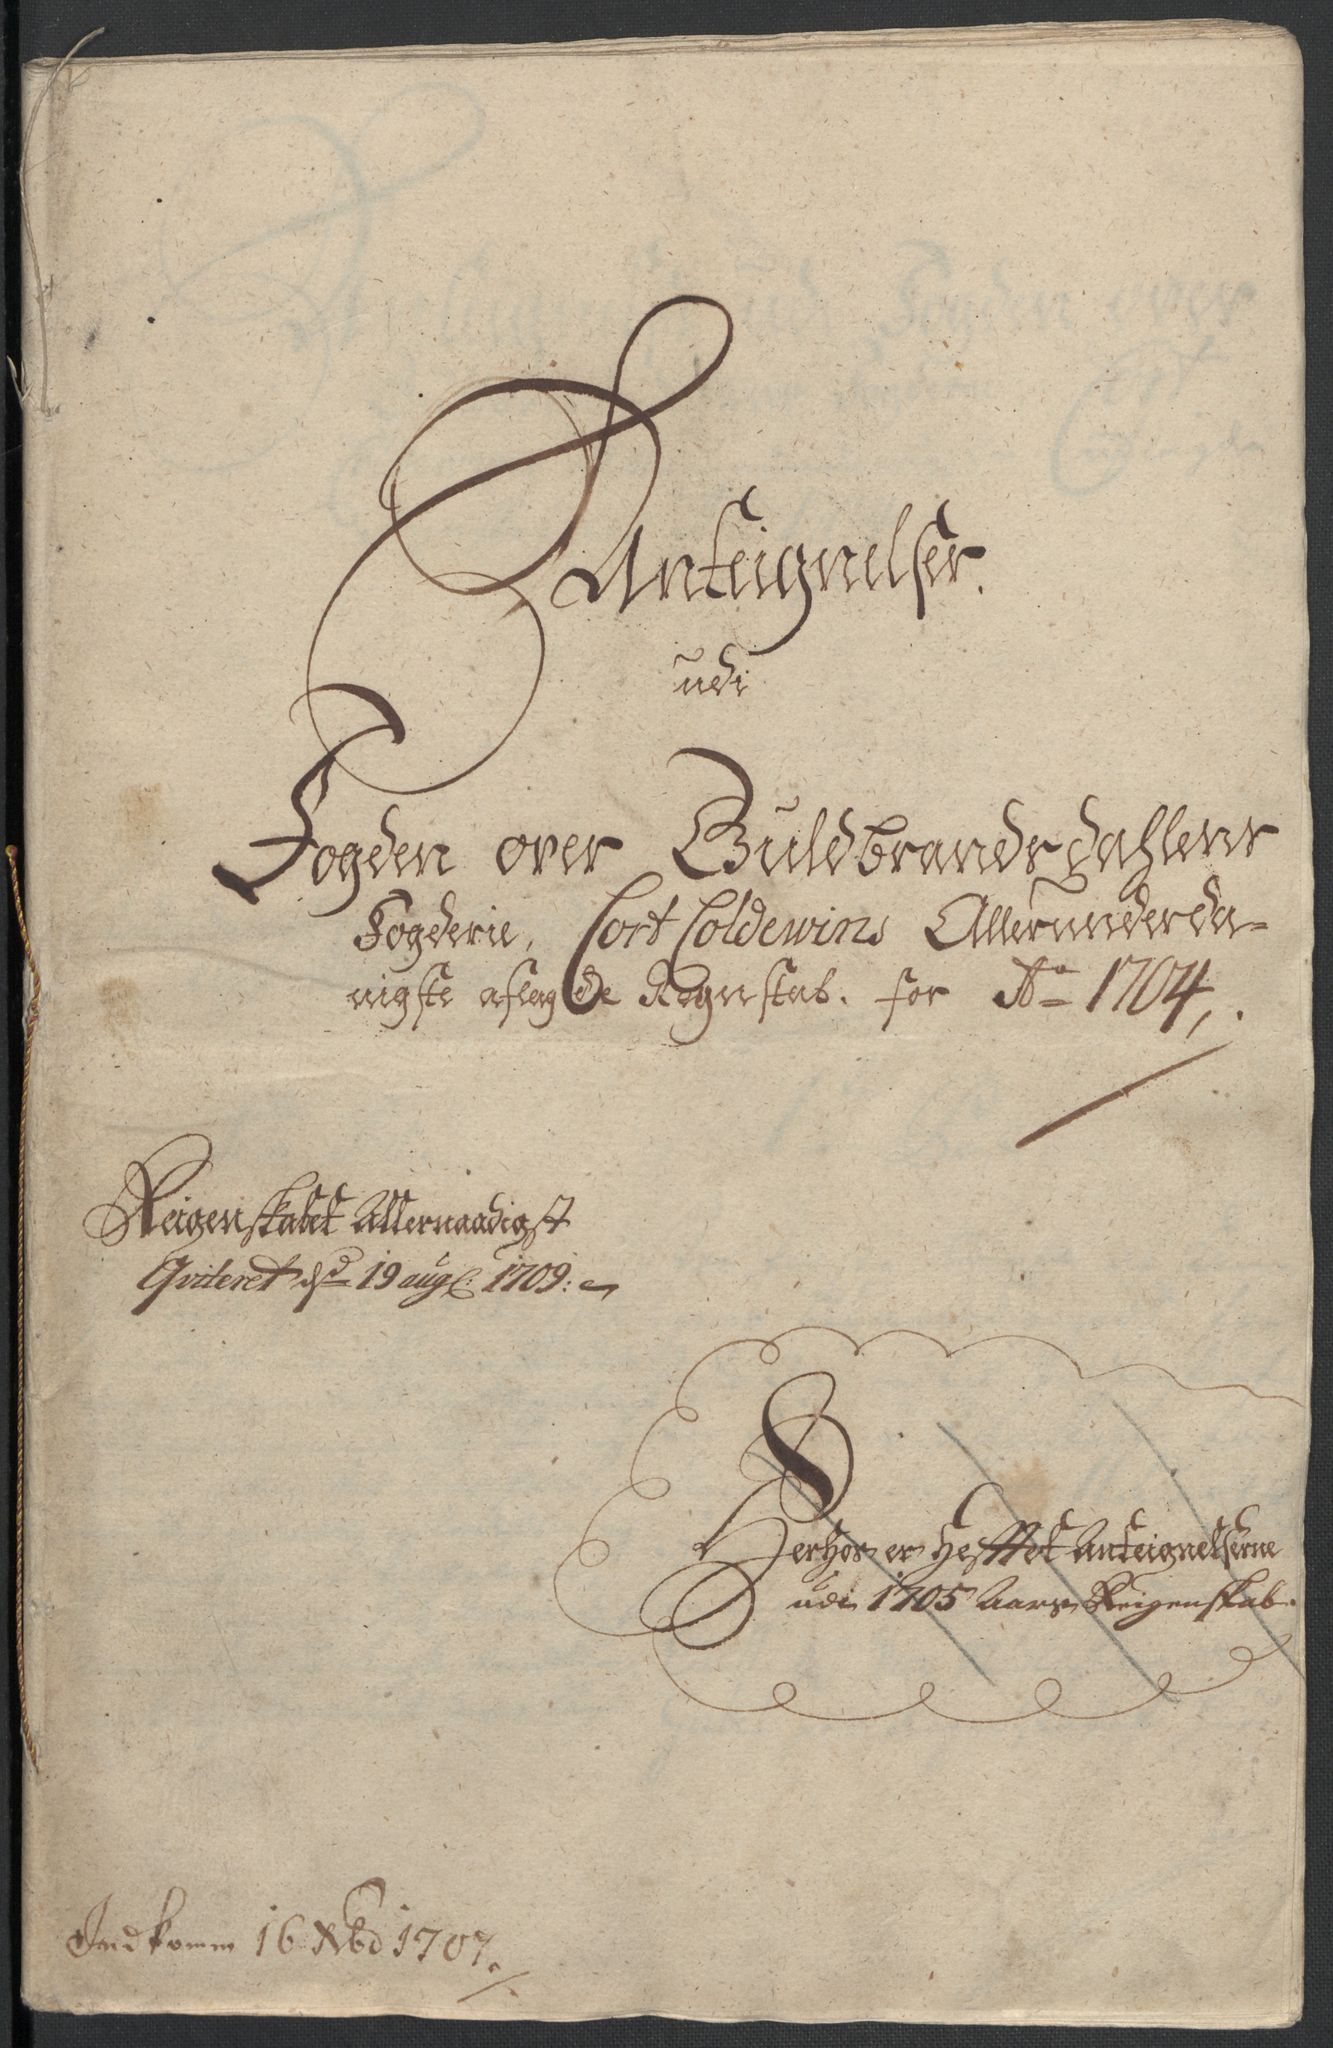 Anteignelser.
udi
Fogden over Guldbrandsdahlens
Fogderie, Cort Coldewins Allerunderda-
nigste aflagde Regnskab. for Ao 1704,.
Reigenskabet Allernaadigst
Qviteret dsd 19 aug: 1709:
Herhos er Hefftet Anteignelserne
udi 1705 Aars Reigenskab.
Indkomm 16 Xbd 1707.